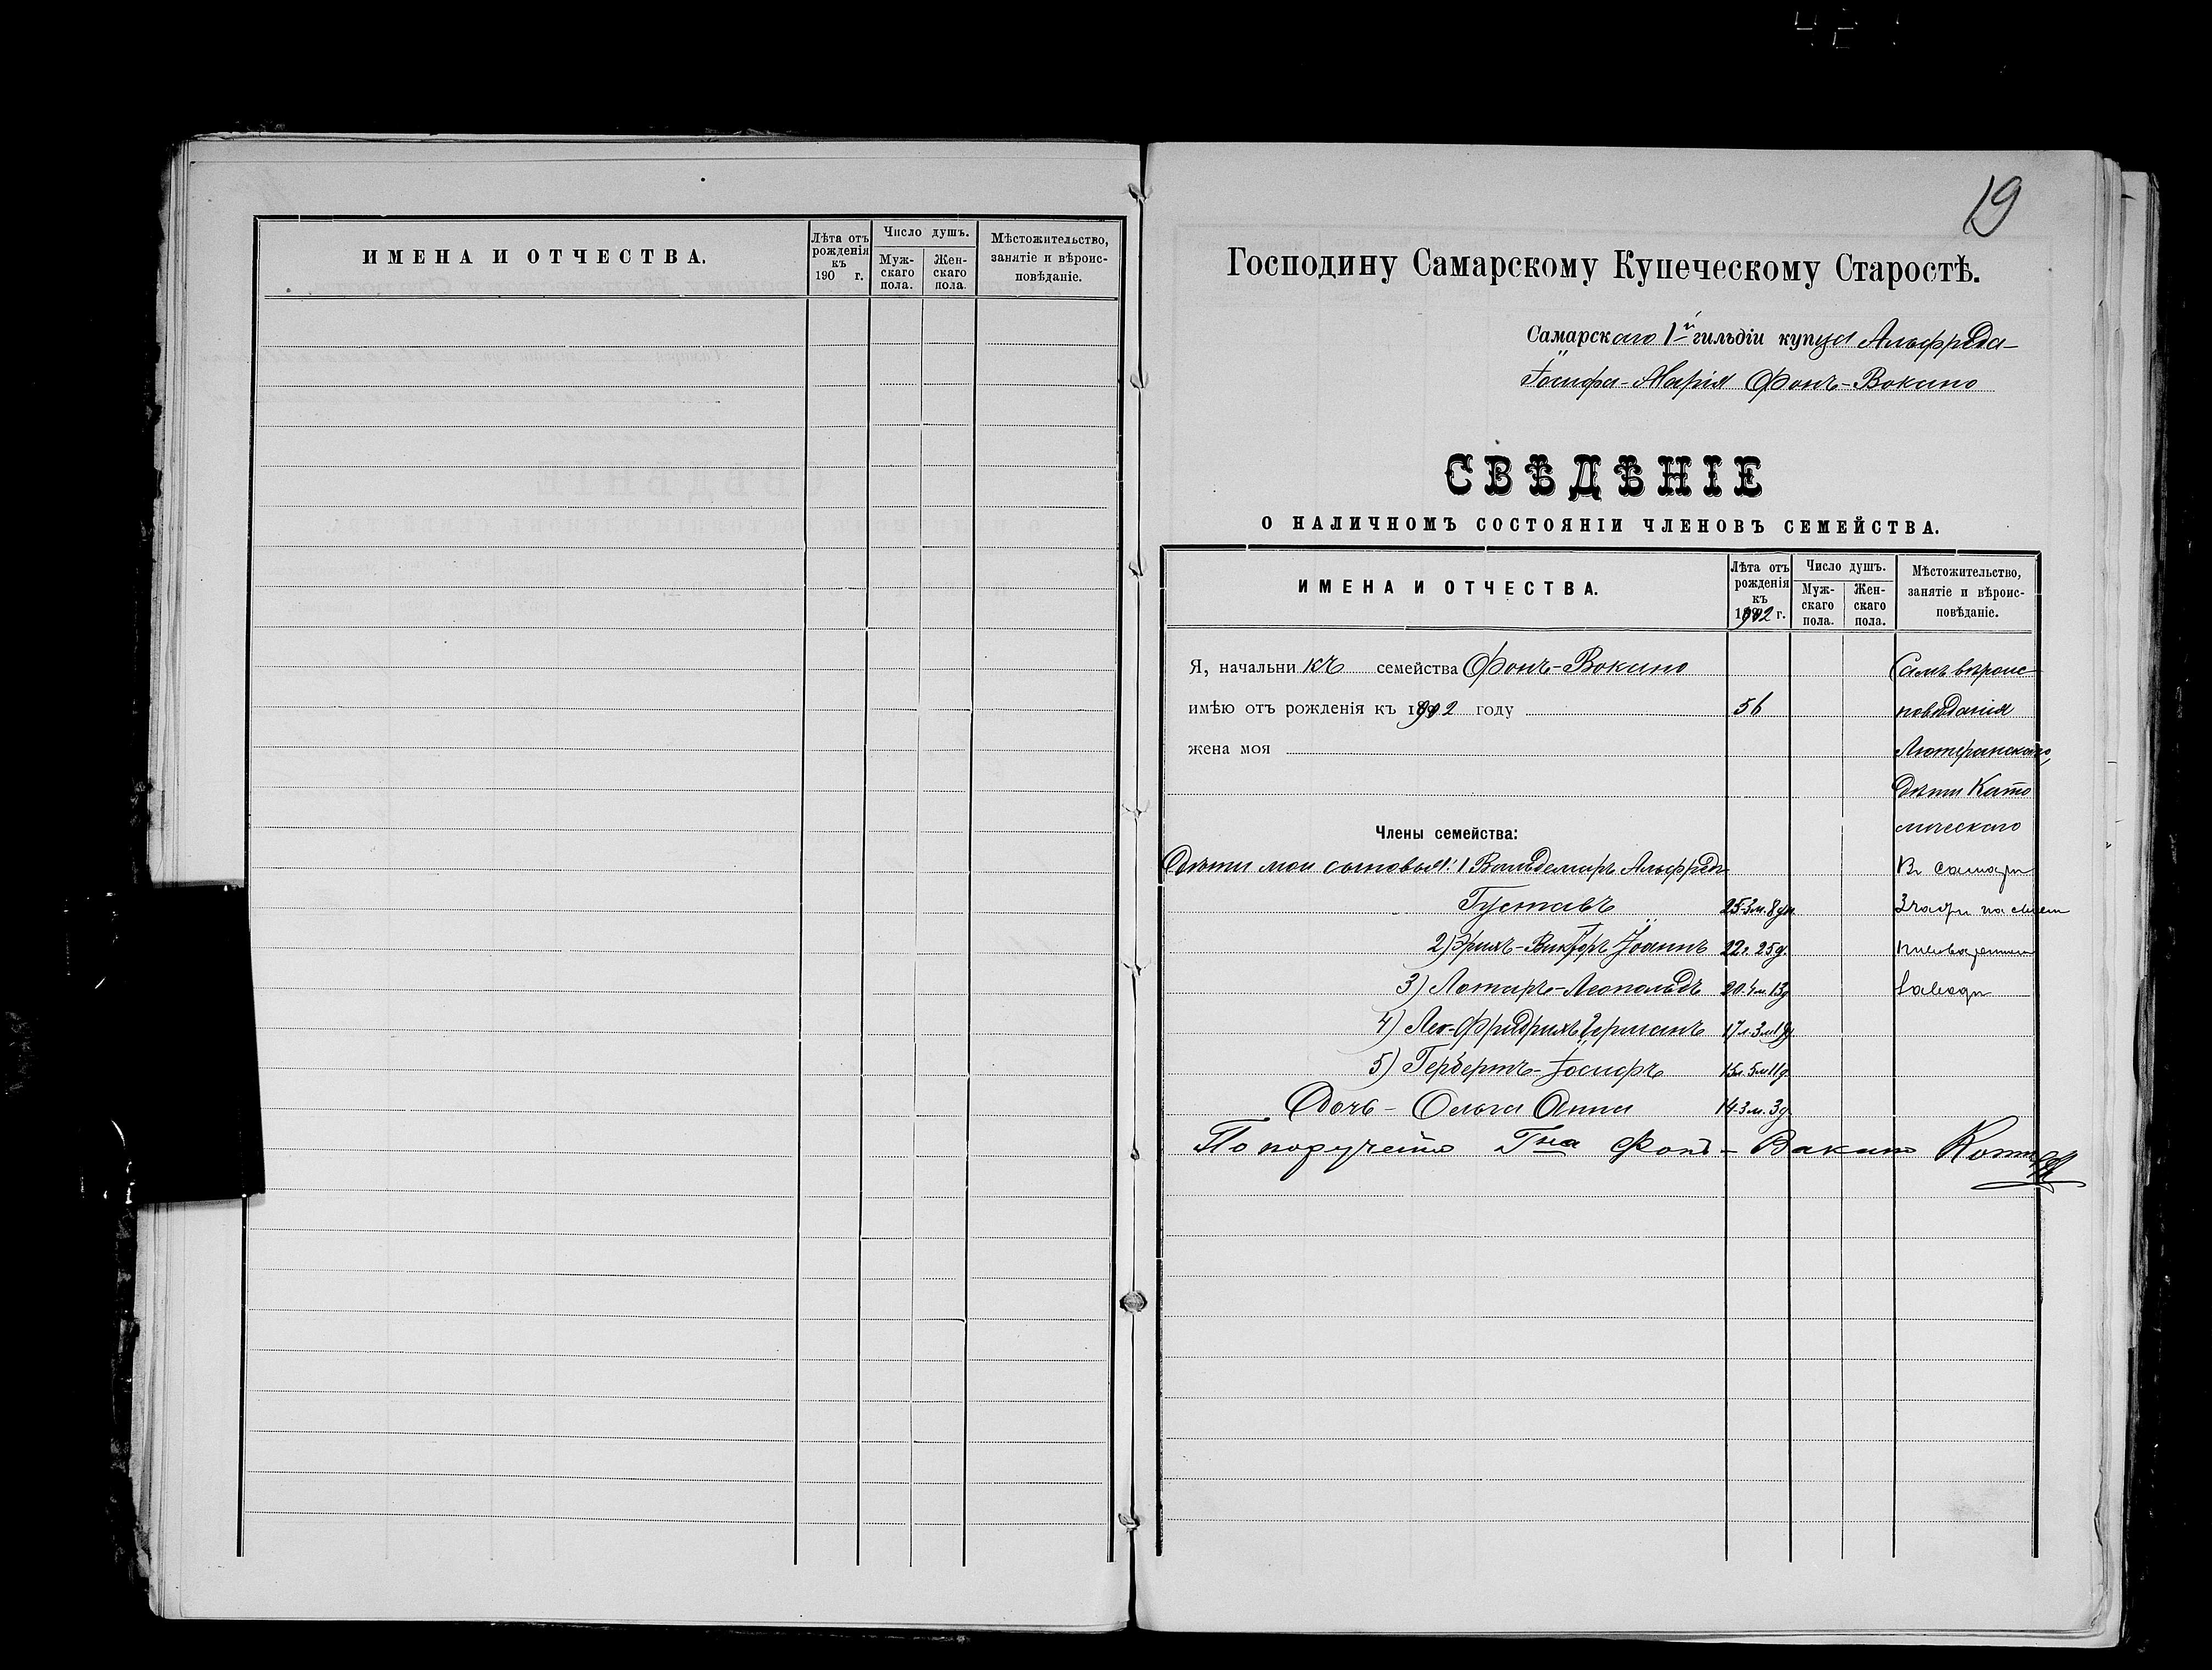 ИМЕНА И ОТЧЕСТВА.
Лѣта отъ рожденія къ 190 г.
Число душъ.
Мужскаго пола.
Женскаго пола.
Мѣстожительство, занятіе и вѣроисповѣданіе.
19
Господину Самарскому Купеческому Старостѣ.
Самарскаго 1й гильдіи купца Альфреда-
Іосифа-Марія Фонъ-Вокано
СВѢДѢНІЕ
О НАЛИЧНОМЪ СОСТОЯНІИ ЧЛЕНОВЪ СЕМЕЙСТВА.
ИМЕНА И ОТЧЕСТВА.
Лѣта отъ рожденія къ 1902 г.
Число душъ.
Мужскаго пола.
Женскаго пола.
Мѣстожительство, занятіе и вѣроисповѣданіе.
Я, начальникъ семейства Фонъ-Вокано Самъ вѣроис-
имѣю отъ рожденія къ 1902 году 56 повѣданія
жена моя Лютеранскаго,
дѣти Като
Члены семейства: лическаго
Дѣти мои сыновья: 1 Вольдемаръ Альфредъ Въ Самарѣ
Густавъ 25-3м. 8дн.
2) Эрихъ-Викторъ Іоаннъ 22л. 25д.
3) Лотаръ-Леопольдъ 20.4м.13д заводѣ
4) Лео-Фридрихъ Германъ 17л.3м1д
5) Гербертъ-Іосифъ 15л.5м11д.
Дочь - Ольга Анна 14-3м.3д.
По порученію Гна Фонъ-Вакано